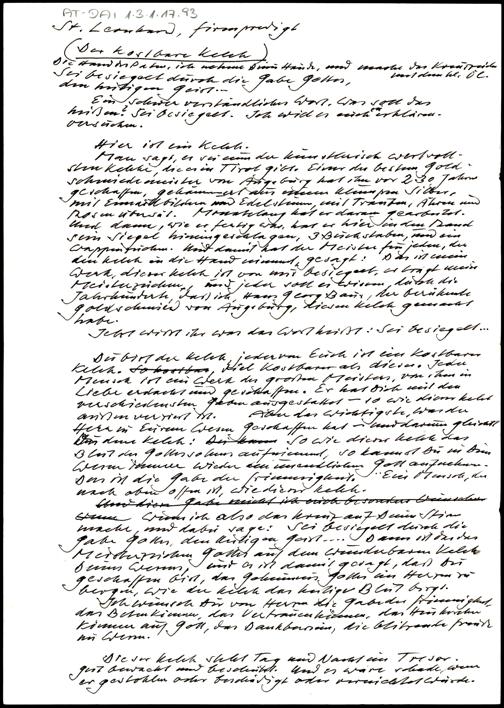 AT-DAI 1.3.1.17.93
St. Leonhard, Firmpredigt
(Der kostbare Kelch)
Sei besiegelt durch die Gabe Gottes,
den heiligen Geist...
Ein schwer verständliches Wort. Was soll das
heißen: Sei besiegelt. Ich will es euch erklären
versuchen.
Hier ist ein Kelch.
Man sagt, es sei einer der künstlerisch wertvoll-
sten Kelche, die es in Tirol gibt. Einer der besten Gold-
schmiedemeister von Augsburg hat ihn vor 230 Jahren
geschaffen, gehämmert aus einem klumpen Silber,
mit Emailbildern und Edelsteinen, mit Trauben, Ähren und
Rosen übersät. Monatelang hat er daran gearbeitet.
Und dann, wie er fertig war, hat er hier in den Rand
sein Siegel hineingeschlagen, 3 Buchstaben, und ein
Wappenzeichen. Und damit hat der Meister für jeden, der
den Kelch in die Hand nimmt, gesagt: Das ist mein
Werk, dieser Kelch ist von mir besiegelt, er trägt mein
Meisterzeichen, und jeder soll es wissen, durch die
Jahrhunderte, dass ich, Hans Georg Baur, der berühmte
Goldschmied von Augsburg, diesen Kelch gemacht
habe.
Jetzt wisst ihr was das Wort heißt: Sei besiegelt...
Du bist der Kelch, jeder von Euch ist ein kostbarer
Kelch. viel kostbarer als dieser. Jeder
Mensch ist ein Werk des großen Meisters, von ihm in
Liebe erdacht und geschaffen. Er hat Dich mit den
verschiedensten Gaben ausgestattet – so wie dieser Kelch
außen verziert ist. Aber das Wichtigste, was der
Herr in Eurem Wesen geschaffen hat – und darum gleicht
Du dem Kelch: so wie dieser Kelch das
Blut des Gottessohnes aufnimmt, so kannst Du in Dein
Wesen immer wieder den unendlichen Gott aufnehmen.
Das ist die Gabe der Innerlichkeit. Ein Mensch, der
nach oben offen ist, wie dieser Kelch.
Wenn ich also das Kreuz auf Deine Stirn
mache, und dabei sage: Sei besiegelt durch die
Gabe Gottes, den heiligen Geist.... Dann ist das das
Meisterzeichen Gottes auf dem wunderbaren Kelch
Deines Wesens, und es ist damit gesagt, daß Du
geschaffen bist, das Geheimnis Gottes im Herzen zu
bergen, wie der Kelch das heilige Blut birgt.
Ich wünsch Dir von Herzen die Gabe der Innerlichkeit,
das Betenkönnen, das Vertrauenkönnen, das Hinhorchen
können auf Gott, das Dankbarsein, die blitzende Freude
im Wesen.
Dieser Kelch steht Tag und Nacht im Tresor.
gut bewacht und beschützt. Und es wäre schade, wenn
er gestohlen oder beschädigt oder vernichtet würde.